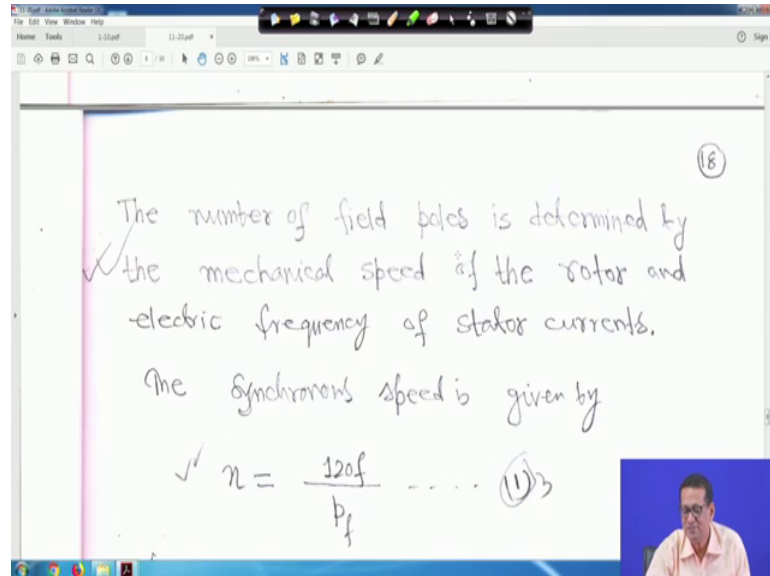 11-20.pdf - Adobe Acrobat Reader DC
File Edit View Window Help
Home Tools 1-10.pdf 11-20.pdf × Sign
18
The number of field poles is determined by
the mechanical speed of the rotor and
electric frequency of stator currents.
The synchronous speed is given by
n = 120f / Pf .... (11)